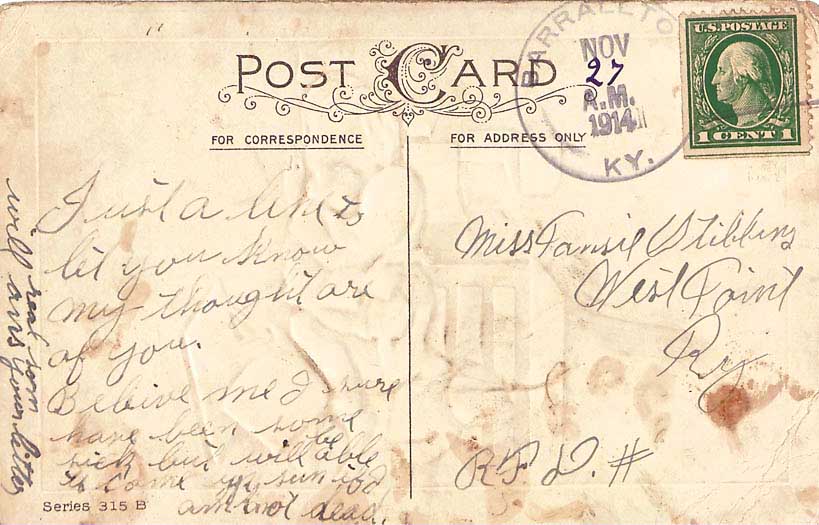 POST CARD
FOR CORRESPONDENCE
FOR ADDRESS ONLY
BARRALLTO
NOV
27
A.M.
1914
KY.
U.S. POSTAGE
1 CENT 1
Just a line to
let you know
my thought are
of you.
Beleive me I sure
have been some
sick but will be able
to come up sun if I
am not dead.
will ans your letter
real soon
Miss Fansie Stibbins
West Point
Ky
R F D. #
Series 315 B